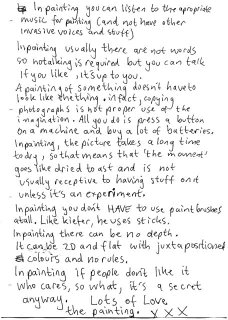 In painting you can listen to the apropriate
music for painting (and not have other
invasive voices and stuff)
Inpainting usually there are not words
so notalking is required but you can talk
If you like, it's up to you.
A painting of something doesn't have to
look like the thing. infact, copying
photographs is not proper use of the
imagination. All you do is press a button
on a machine and buy a lot of batteries.
In painting, the picture takes a long time
to dry, so that means that 'the moment'
goes like dried toast and is not
usually receptive to having stuff on it
unless it's an experiment.
In painting you don't HAVE to use paint brushes
atall. Like kiefer, he uses sticks.
In painting there can be no depth.
It can be 2D and flat with juxtapositioned
colours and no rules.
In painting if people don't like it
who cares, so what, it's a secret
anyway. Lots of Love
the painting. x X X